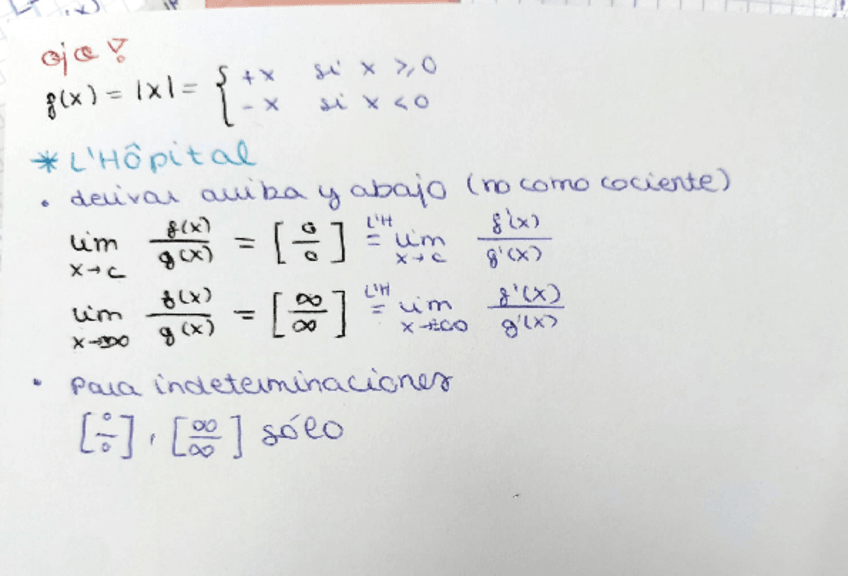 ojo!
f(x) = |x| = { +x si x ≥ 0
- x si x < 0
* L'Hôpital
• derivar arriba y abajo (no como cociente)
lim x→c f(x)/g(x) = [0/0] L'H = lim x→c f'(x)/g'(x)
lim x→∞ f(x)/g(x) = [∞/∞] L'H = lim x→±∞ f'(x)/g'(x)
• Para indeterminaciones
[0/0], [∞/∞] sólo